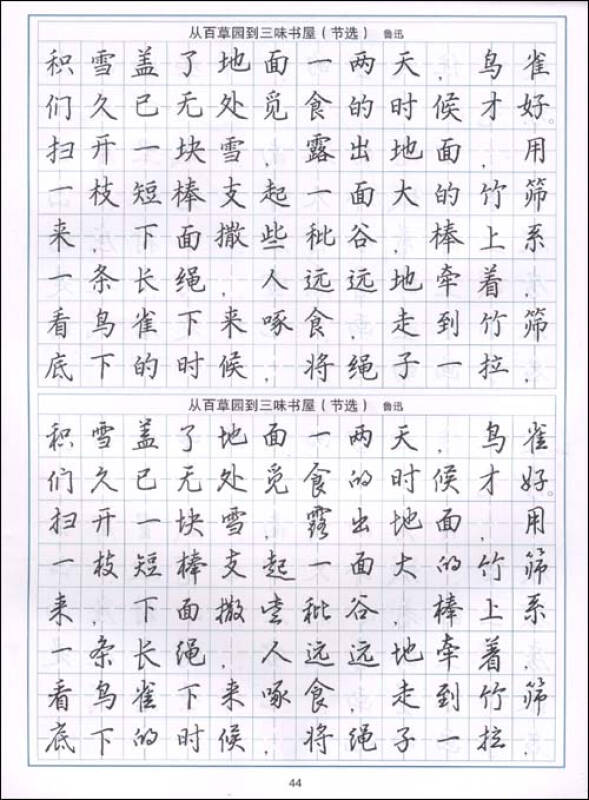 从百草园到三味书屋(节选) 鲁迅
积雪盖了地面一两天,鸟雀
们久已无处觅食的时候才好。
扫开一块雪,露出地面,用
一枝短棒支起一面大的竹筛
来,下面撒些秕谷,棒上系
一条长绳,人远远地牵着,
看鸟雀下来啄食,走到竹筛
底下的时候,将绳子一拉,
从百草园到三味书屋(节选) 鲁迅
积雪盖了地面一两天,鸟雀
们久已无处觅食的时候才好。
扫开一块雪,露出地面,用
一枝短棒支起一面大的竹筛
来,下面撒些秕谷,棒上系
一条长绳,人远远地牵着,
看鸟雀下来啄食,走到竹筛
底下的时候,将绳子一拉,
44